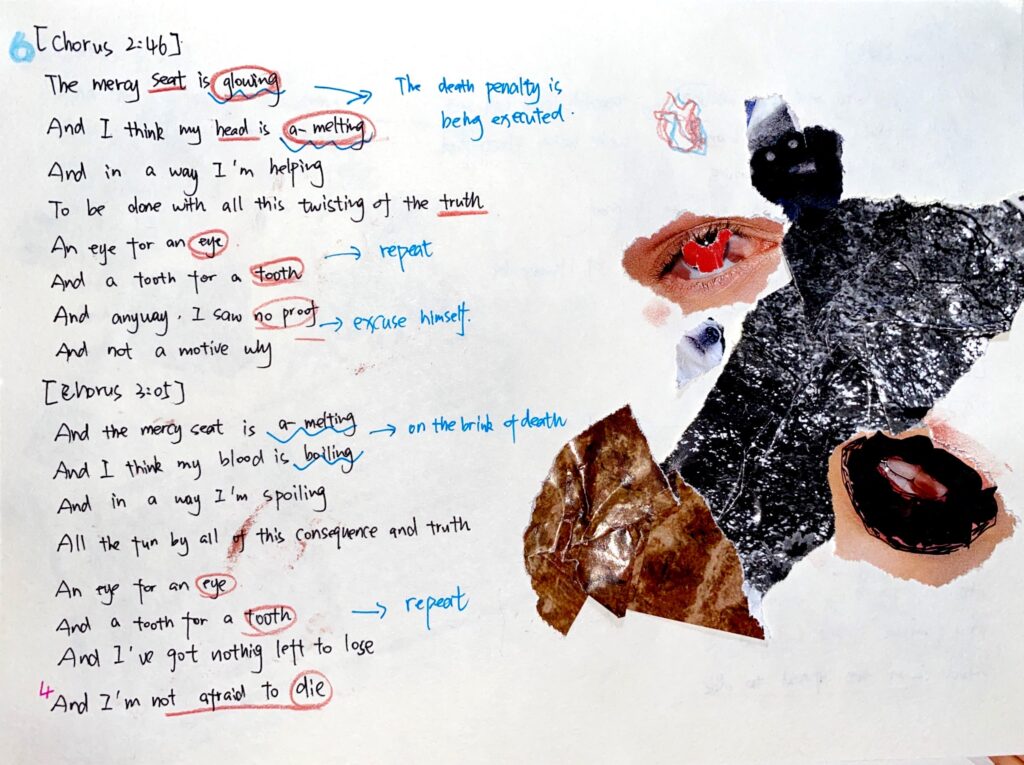 6 [Chorus 2:46]
The mercy seat is glowing → The death penalty is
being executed.
And I think my head is a-melting
And in a way I'm helping
To be done with all this twisting of the truth
An eye for an eye
→ repeat
And a tooth for a tooth
And anyway. I saw no proof → excuse himself.
And not a motive why
[Chorus 3:05]
And the mercy seat is a-melting → on the brink of death
And I think my blood is boiling
And in a way I'm spoiling
All the fun by all of this consequence and truth
An eye for an eye
And a tooth for a tooth → repeat
And I've got nothig left to lose
4 And I'm not afraid to die